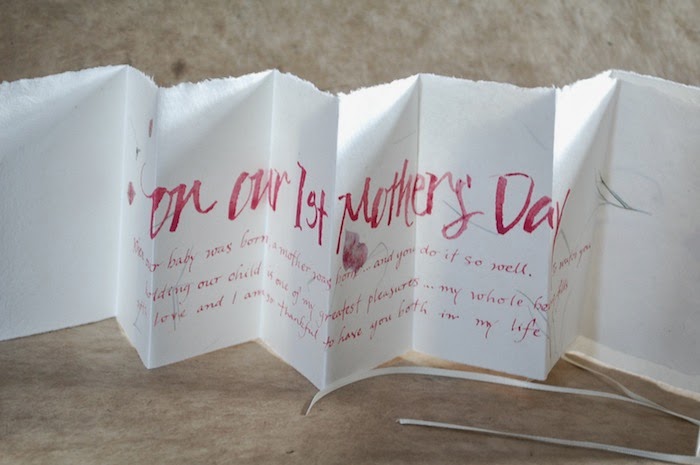 on our 1st Mother's Day
When our baby was born a mother was born ... and you do it so well. To watch you
holding our child is one of my greatest pleasures ... my whole body fills
with love and I am so thankful to have you both in my life